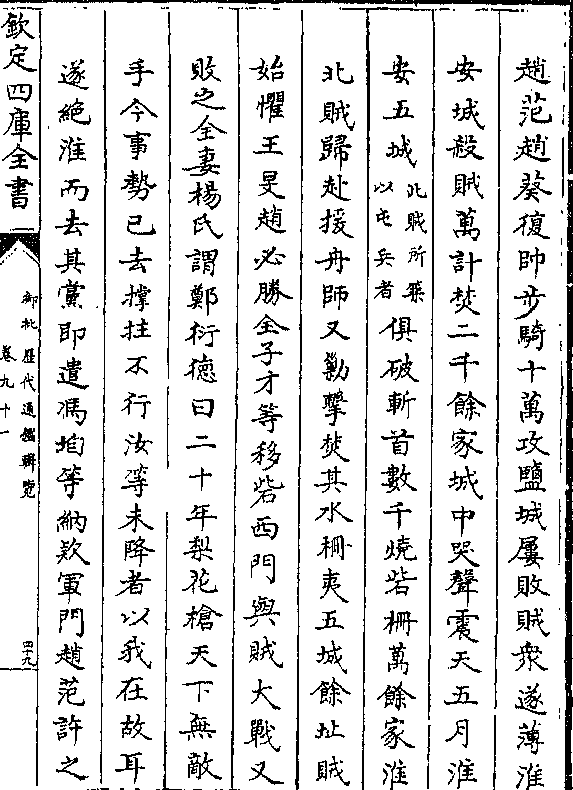 趙范趙葵復帥步騎十萬攻鹽城屢敗賊衆遂薄淮
安城殺賊萬計焚二千餘家城中哭聲震天五月淮
安五城北賊所築以屯兵者俱破斬首數千燒砦柵萬餘家淮
北賊歸赴援舟師又勦擊焚其水柵夷五城餘址賊
始懼王旻趙必勝全子才等移砦西門與賊大戰又
敗之全妻楊氏謂鄭衍德曰二十年梨花槍天下無敵
手今事勢已去撐拄不行汝等未降者以我在故耳
遂絶淮而去其黨即遣馮垍等納欵軍門趙范許之
欽定四庫全書
御批歷代通鑑輯覽
卷九十一
四十九